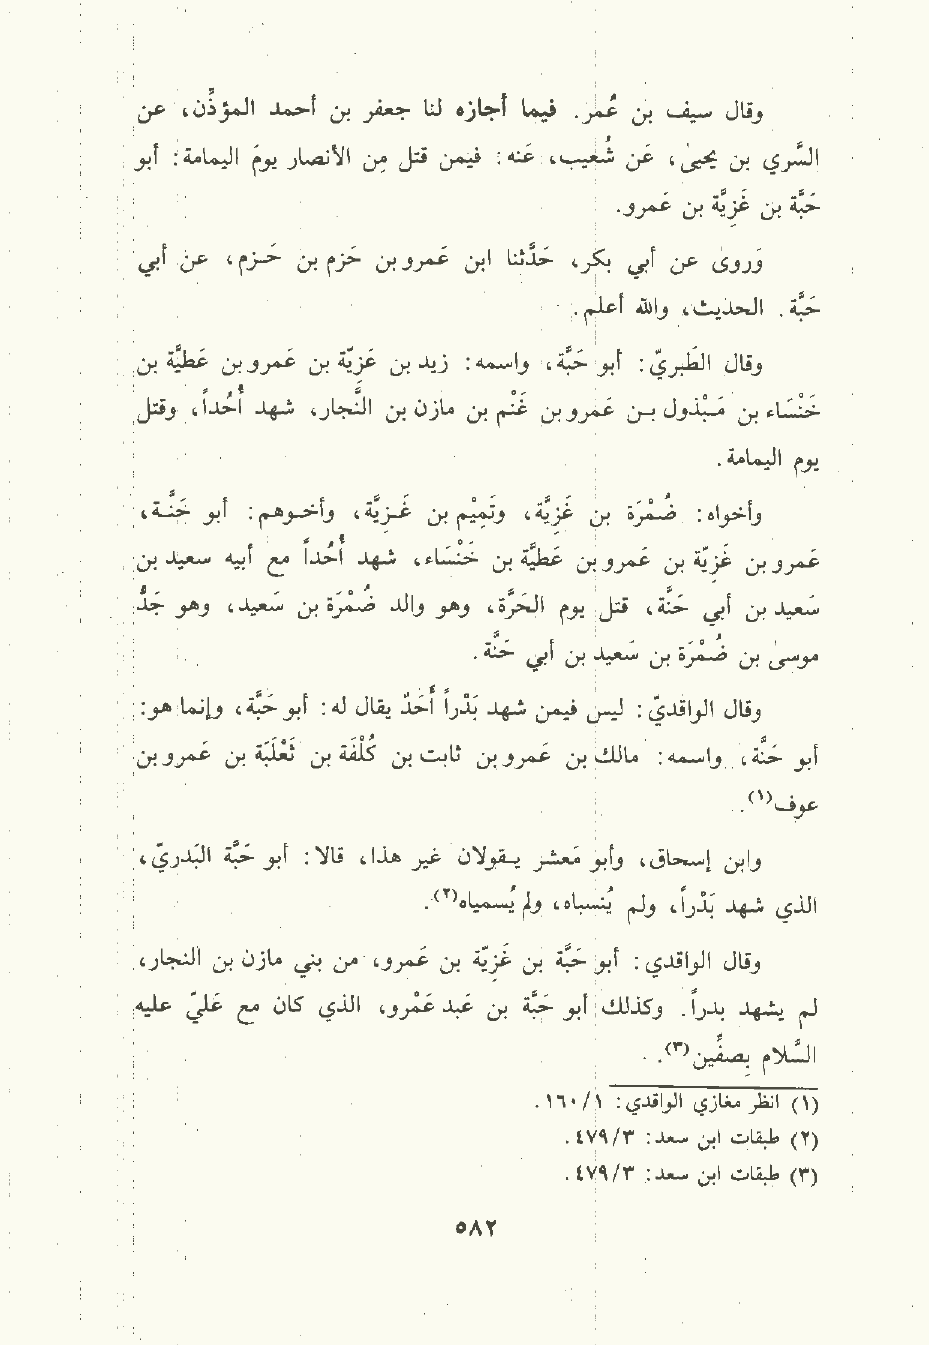 وقال سيف بن عُمر. فيما أجازه لنا جعفر بن أحمد المؤذِّن، عن
السَّري بن يحيىٰ، عَن شُعيب، عَنه: فيمن قتل مِن الأنصار يومَ اليمامة: أبو
حَبَّة بن غَزِيَّة بن عَمرو.
وَروىٰ عن أبي بكر، حَدَّثنا ابن عَمرو بن حَزم بن حَـزم، عن أبي
حَبَّة. الحديث، والله أعلم.
وقال الطَبريّ: أبو حَبَّة، واسمه: زيد بن غَزيّة بن عَمرو بن عَطيَّة بن
خَنْسَاء بن مَبْذول بـن عَمرو بن غَنْم بن مازن بن النَّجار، شهد أُحُداً، وقتل
يوم اليمامة.
وأخواه: ضُمْرَة بن غَزِيَّة، وتَمِيْم بن غَـزِيَّة، وأخـوهم: أبو خَنَّـة،
عَمرو بن غَزِيّة بن عَمرو بن عَطيَّة بن خَنْسَاء، شهد أُحُداً مع أبيه سعيد بن
سَعيد بن أبي حَنَّة، قتل يوم الحَرَّة، وهو والد ضُمْرَة بن سَعيد، وهو جَدُّ
موسىٰ بن ضُمْرَة بن سَعيد بن أبي حَنَّة.
وقال الواقديّ: ليس فيمن شهد بَدْراً أَحَدٌ يقال له: أبو حَبَّة، وإنما هو:
أبو حَنَّة، واسمه: مالك بن عَمرو بن ثابت بن كُلْفَة بن ثَعْلَبَة بن عَمرو بن
عوف(١).
وابن إسحاق، وأبو مَعشر يـقولان غير هذا، قالا: أبو حَبَّة البَدريّ،
الذي شهد بَدْراً، ولم يُنسباه، ولم يُسمياه(٢).
وقال الواقدي: أبو حَبَّة بن غَزِيّة بن عَمرو، من بني مازن بن النجار،
لم يشهد بدراً. وكذلك أبو حَبَّة بن عَبد عَمْرو، الذي كان مع عَليّ عليه
السَّلام بِصفِّين(٣).
(١) انظر مغازي الواقدي: ١/ ١٦٠.
(٢) طبقات ابن سعد: ٣/ ٤٧٩.
(٣) طبقات ابن سعد: ٣/ ٤٧٩.
٥٨٢